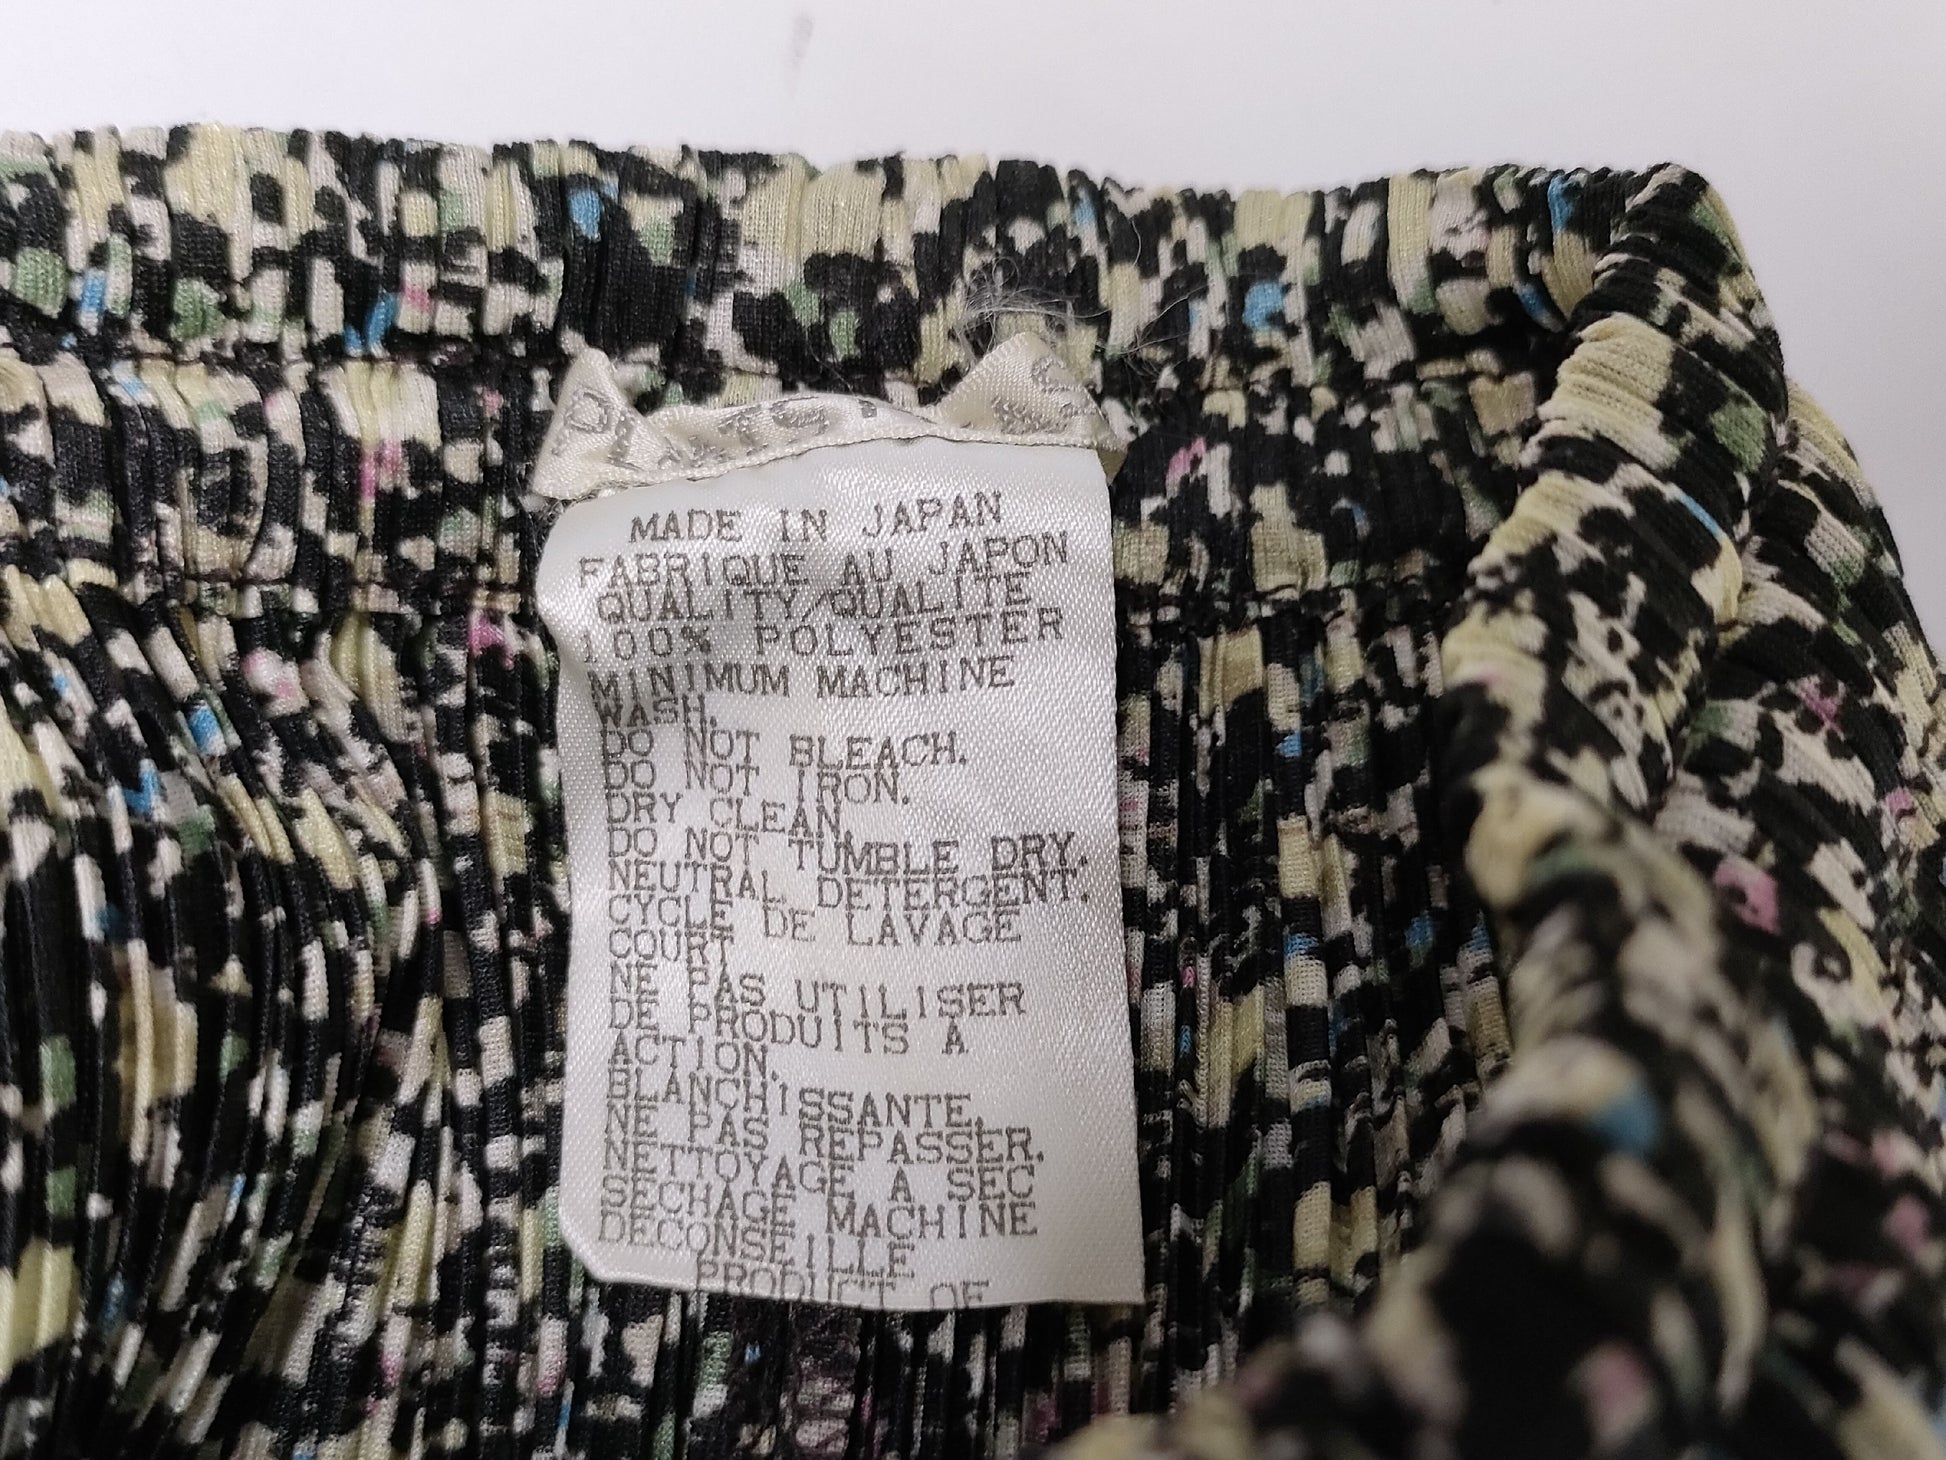 MADE IN JAPAN
FABRIQUE AU JAPON
QUALITY/QUALITE
100% POLYESTER
MINIMUM MACHINE
WASH.
DO NOT BLEACH.
DO NOT IRON.
DRY CLEAN.
DO NOT TUMBLE DRY.
NEUTRAL DETERGENT.
CYCLE DE LAVAGE
COURT
NE PAS UTILISER
DE PRODUITS A
ACTION.
BLANCHISSANTE.
NE PAS REPASSER.
NETTOYAGE A SEC
SECHAGE MACHINE
DECONSEILLE
PRODUCT OF